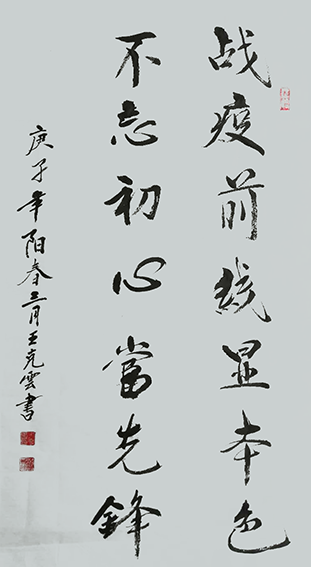 战疫前线显本色
不忘初心當先锋
庚子年阳春三月王克雲書